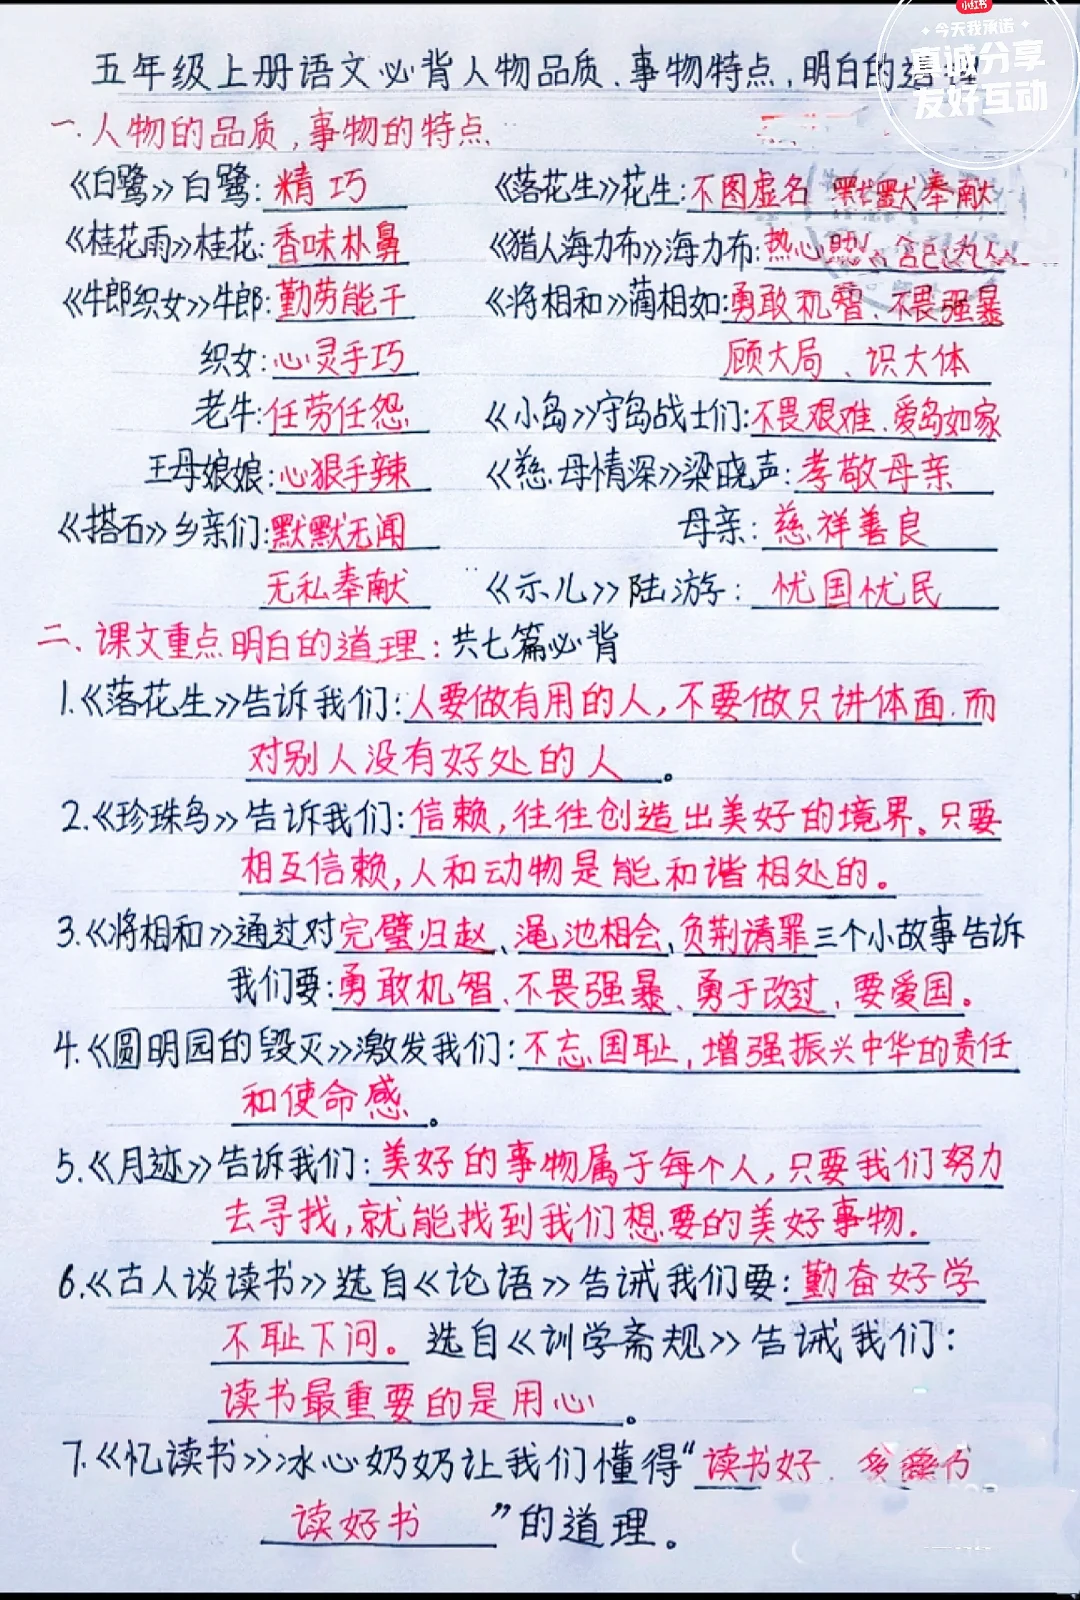 小红书
今天我承诺
真诚分享
友好互动
五年级上册语文必背人物品质、事物特点,明白的道理
一.人物的品质,事物的特点
《白鹭》白鹭:精巧
《落花生》花生:不图虚名 默默奉献
《桂花雨》桂花:香味扑鼻
《猎人海力布》海力布:热心助人 舍己为人
《牛郎织女》牛郎:勤劳能干
《将相和》蔺相如:勇敢机智、不畏强暴
织女:心灵手巧
顾大局、识大体
老牛:任劳任怨
《小岛》守岛战士们:不畏艰难、爱岛如家
王母娘娘:心狠手辣
《慈母情深》梁晓声:孝敬母亲
《搭石》乡亲们:默默无闻
母亲:慈祥善良
无私奉献
《示儿》陆游:忧国忧民
二、课文重点明白的道理:共七篇必背
1.《落花生》告诉我们:人要做有用的人,不要做只讲体面.而
对别人没有好处的人。
2.《珍珠鸟》告诉我们:信赖,往往创造出美好的境界。只要
相互信赖,人和动物是能和谐相处的。
3.《将相和》通过对完璧归赵、渑池相会、负荆请罪三个小故事告诉
我们要:勇敢机智、不畏强暴、勇于改过,要爱国。
4.《圆明园的毁灭》激发我们:不忘国耻,增强振兴中华的责任
和使命感。
5.《月迹》告诉我们:美好的事物属于每个人,只要我们努力
去寻找,就能找到我们想要的美好事物.
6.《古人谈读书》选自《论语》告诫我们要:勤奋好学
不耻下问。选自《训学斋规》告诫我们:
读书最重要的是用心。
7.《忆读书》冰心奶奶让我们懂得“读书好.多
读好书”的道理。